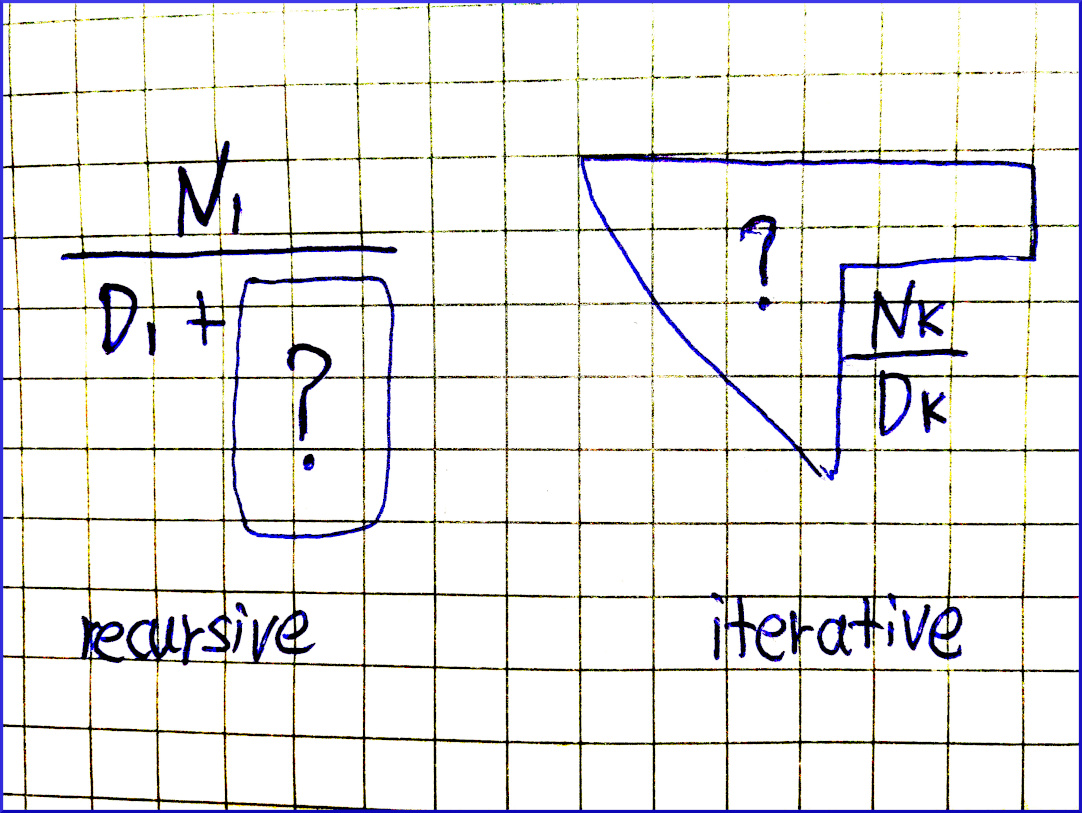 N1
D1 + ?
recursive
?
NK
DK
iterative